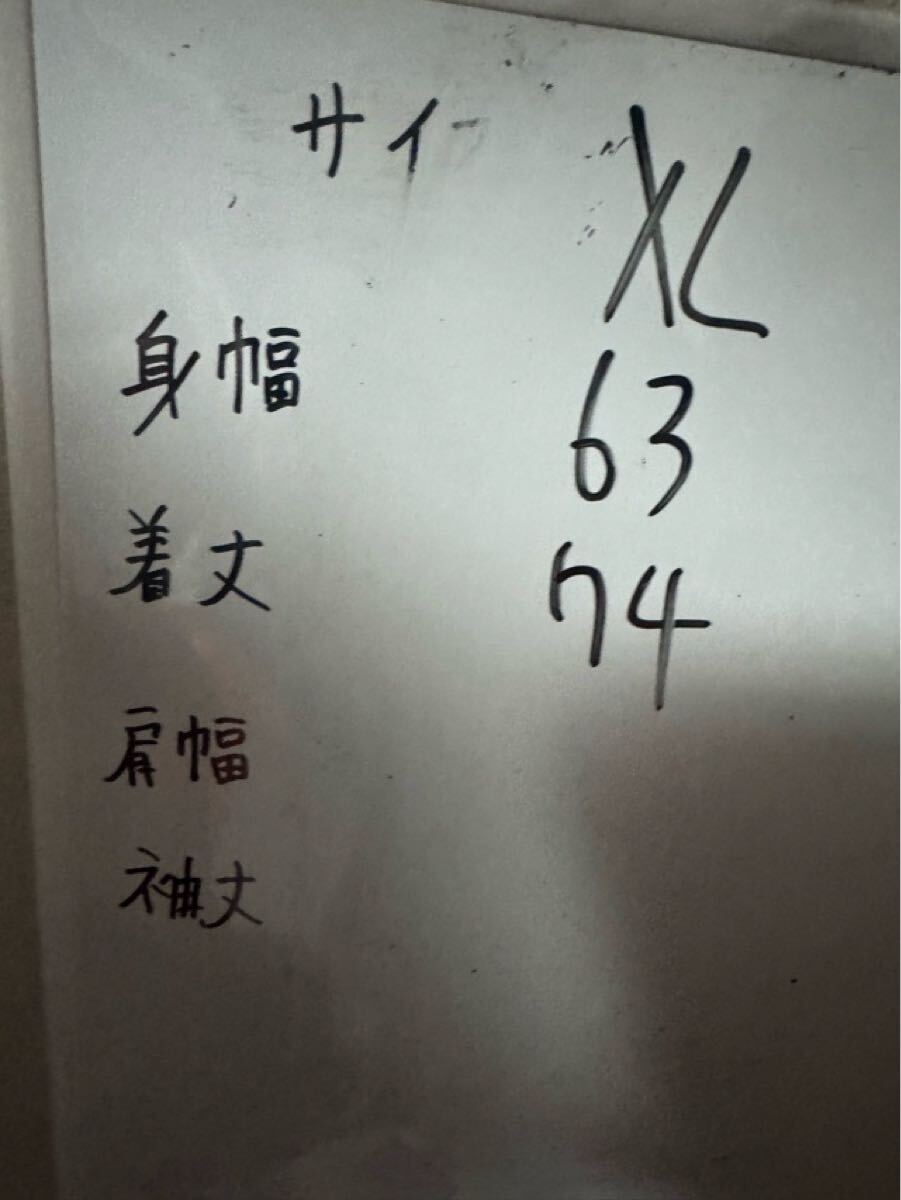 サイ XL
身幅 63
着丈 74
肩幅
袖丈